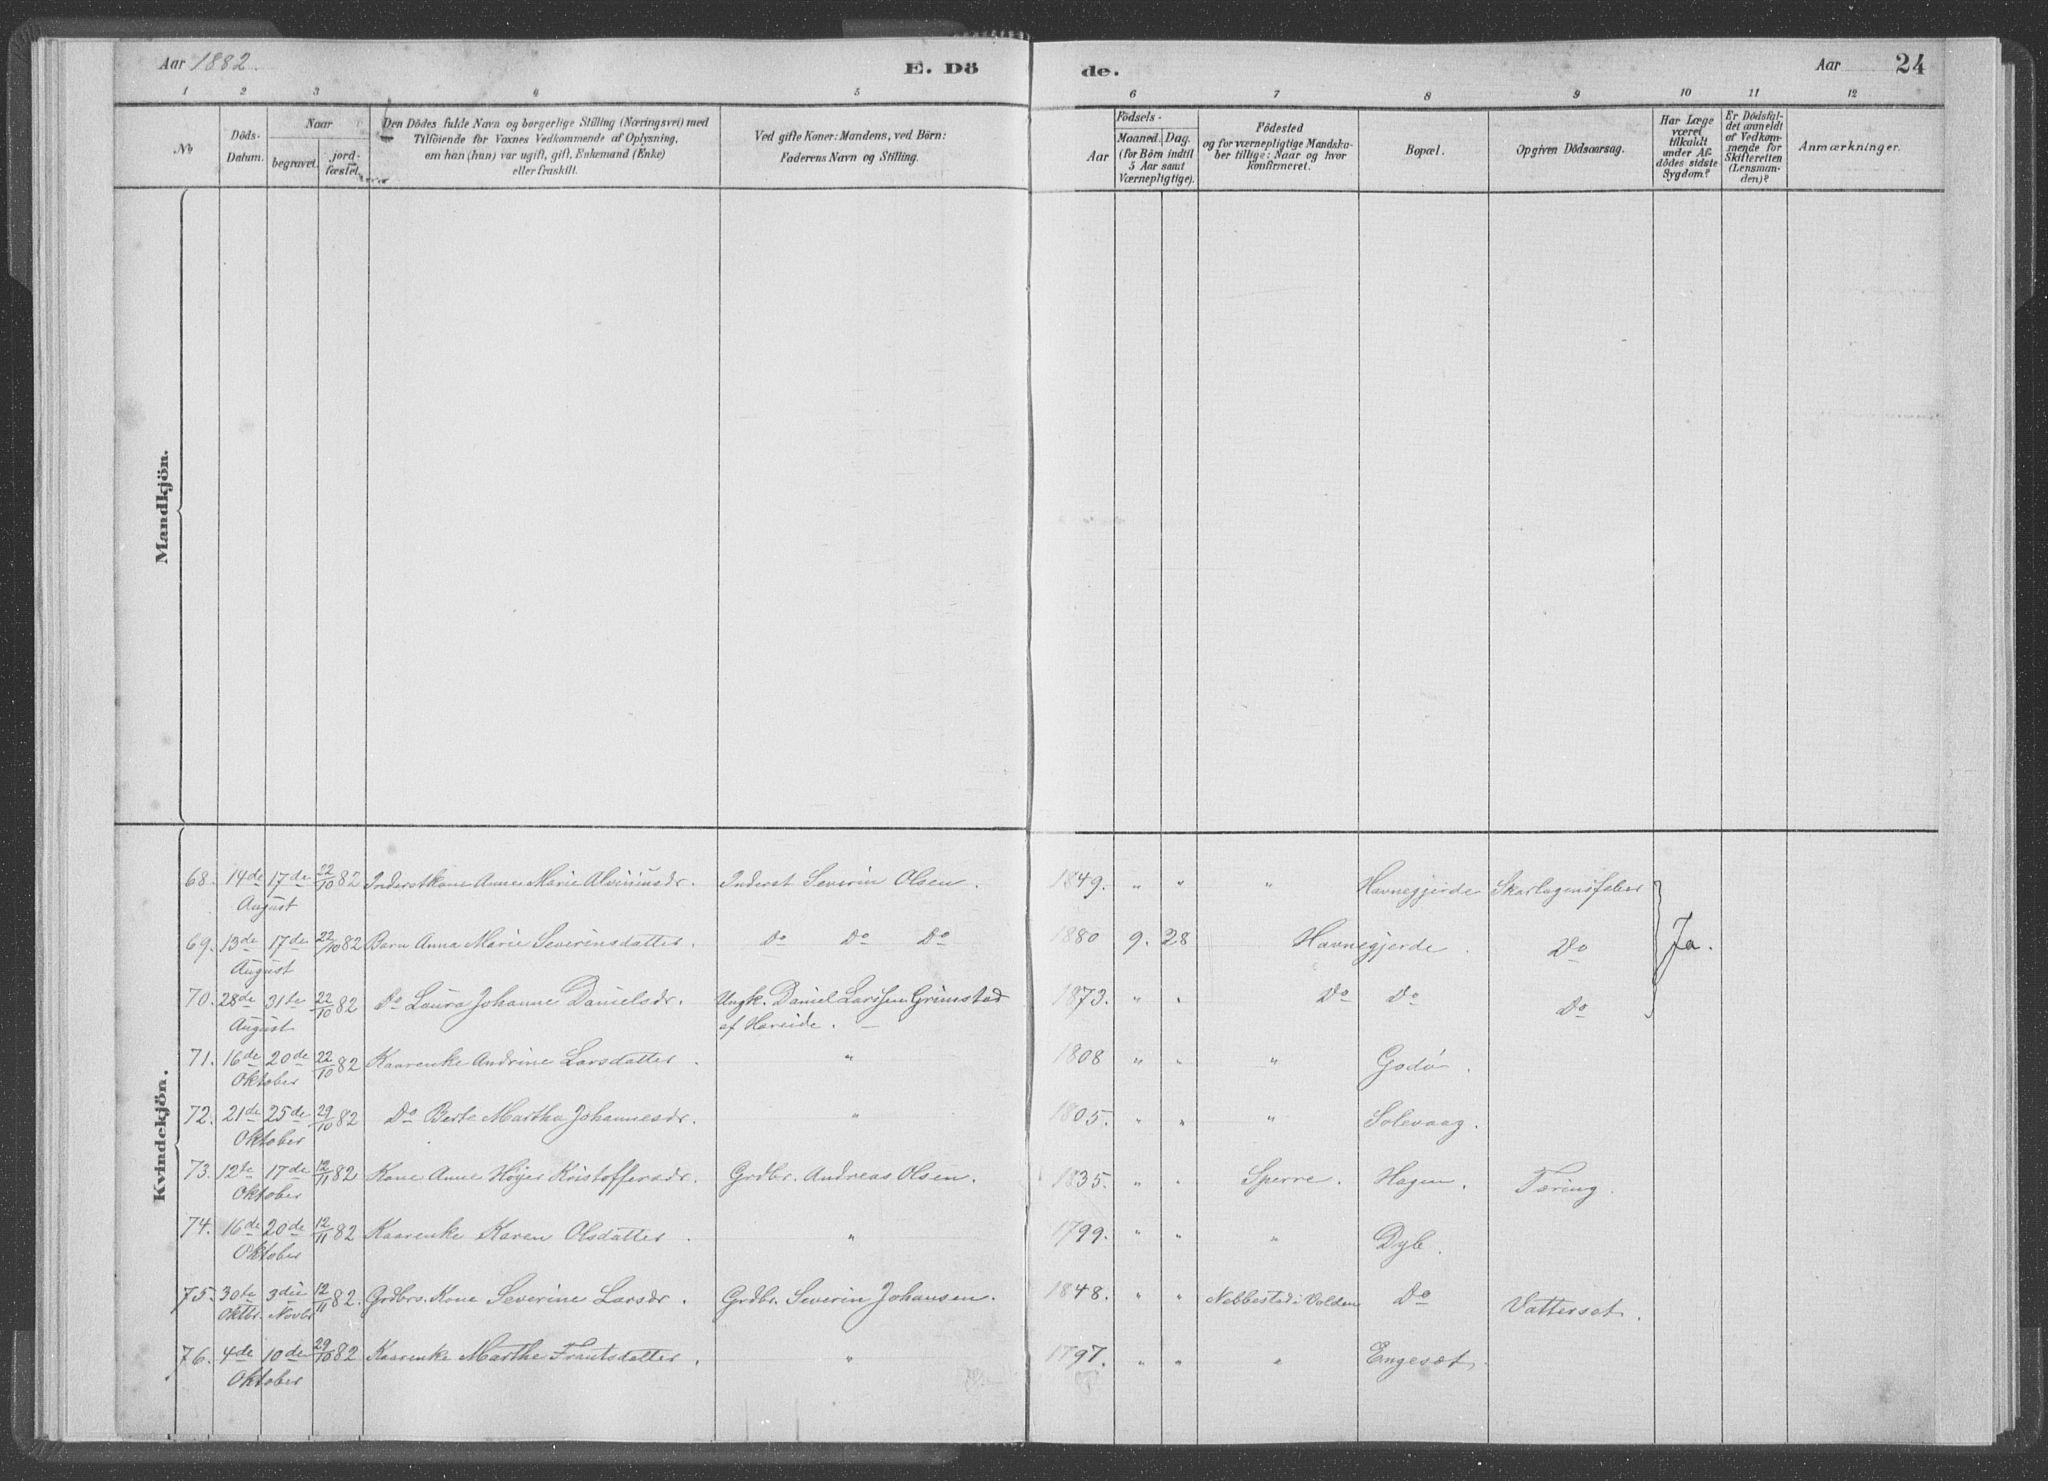 Aar 1882.
E. Dö de.
Aar 24
1 2 3 4 5 6 7 8 9 10 11 12
No
Döds-Datum.
Naar
begravet.
jord-fæstet.
Den Dödes fulde Navn og borgerlige Stilling (Næringsvei) med
Tilföiende for Voxnes Vedkommende af Oplysning,
om han (hun) var ugift, gift, Enkemand (Enke)
eller fraskilt.
Ved gifte Koner: Mandens, ved Börn:
Faderens Navn og Stilling.
Födsels-
Aar
Maaned. Dag.
(for Börn indtil
5 Aar samt
Værnepligtige).
Födested
og for værnepligtige Mandska-
ber tillige: Naar og hvor
konfirmeret.
Bopæl.
Opgiven Dödsaarsag.
Har Læge
været
tilkaldt
under Af-
dödes sidste
Sygdom?
Er Dödsfal-
det anmeldt
af Vedkom-
mende for
Skifteretten
(Lensman-
den)?
Anmærkninger.
Mandkjön.
Kvindekjön.
68. 14de 17de 22/10 82 Inderstkone Anne Marie Alviniusdr. Inderst Severin Olsen. 1849. " " " Havnegjerde Skarlagensfeber
August
69. 13de 17de 22/10 82 Barn Anna Marie Severinsdatter. Do Do Do 1880 9. 28 Havnegjerde. Do Ja.
August
70. 28de 31te 22/10 82 Do Laura Johanne Danielsdr. Ungk. Daniel Larssen Grimstad 1873. " " Do Do Do
August af Hareide. —
71. 16de 20de 22/10 82 Kaarenke Andrine Larsdatter. " 1808 " " " Godö.
Oktober
72. 21de 25de 29/10 82 Do Berte Martha Johannesdr. " 1805. " " " Solevaag.
Oktober
73. 12te 17de 12/11 82 Kone Anne Höyer Kristoffersdr. Grdbr. Andreas Olsen. 1835. " " Sperre. Hagen. Tæring.
Oktober
74. 16de 20de 12/11 82 Kaarenke Karen Olsdatter. " 1799. " " " Dyb.
Oktober
75. 30te 3die 12/11 82. Grdbrs. Kone Severine Larsdr. Grdbr. Severin Johansen. 1848. " " Nebbestad i Volden Do Vattersot.
Oktbr. Novbr
76. 4de 10de 29/10 82 Kaarenke Marthe Frantsdatter. " 1797. " " " Engesæt.
Oktober